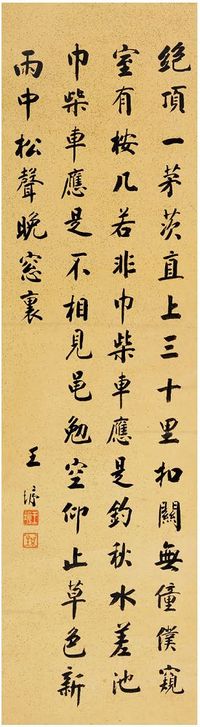 絕頂一茅茨直上三十里扣關無僮僕窺
室有桉几若非巾柴車應是釣秋水差池
巾柴車應是不相見黽勉空仰止草色新
雨中松聲晚窓裏
王